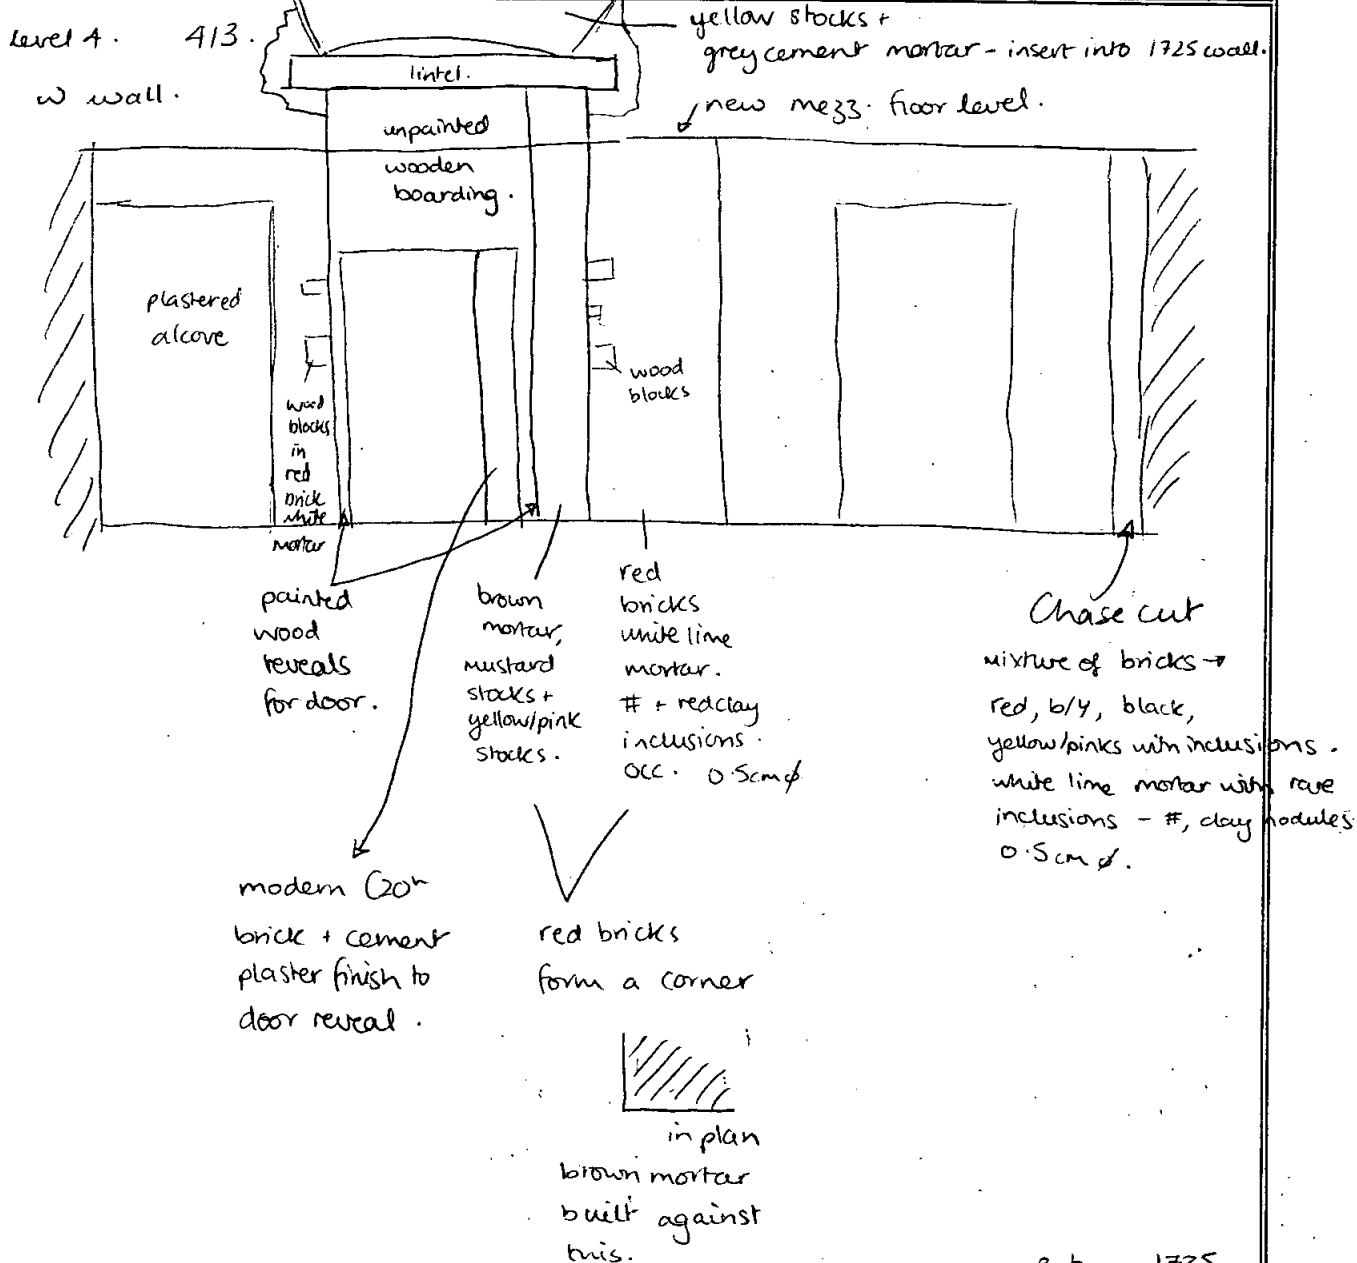 Level 4. 413.
W wall.
yellow stocks +
grey cement mortar - insert into 1725 wall.
new mezz. floor level.
lintel.
unpainted
wooden
boarding.
plastered
alcove
wood
blocks
in
red
brick
white
mortar
wood
blocks
painted
wood
reveals
for door.
brown
mortar,
mustard
stocks +
yellow/pink
stocks.
red
bricks
white lime
mortar.
# + red clay
inclusions.
occ. 0.5cm ø
Chase cut
mixture of bricks →
red, b/y, black,
yellow/pinks with inclusions.
white lime mortar with rare
inclusions - #, clay nodules
0.5cm ø.
modern C20th
brick + cement
plaster finish to
door reveal.
red bricks
form a corner
in plan
brown mortar
built against
this.
1725